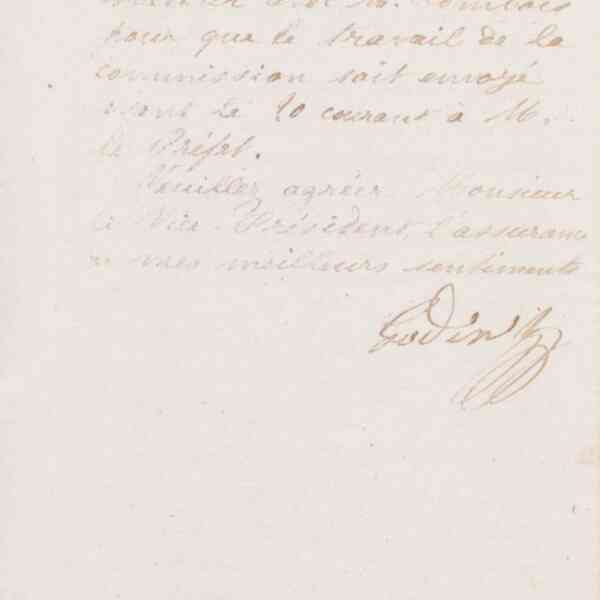 pour que le travail de la
commission soit envoyé
avant le 20 courant à M.
le Préfet.
Veuillez agréer Monsieur
le Vice-Président, l'assurance
de mes meilleurs sentiments
Godin